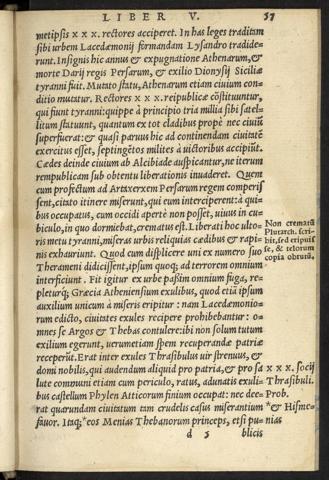 LIBER V. 57
metipsis x x x. rectores acciperet. In has leges traditam
sibi urbem Lacedæmonij formandam Lysandro tradide-
runt. Insignis hic annus & expugnatione Athenarum, &
morte Darij regis Persarum, & exilio Dionysij Siciliæ
tyranni fuit. Mutato statu, Athenarum etiam ciuium con-
ditio mutatur. Rectores x x x. reipublicæ cõstituuntur,
qui fiunt tyranni: quippe à principio tria millia sibi satel-
litum statuunt, quantum ex tot cladibus propè nec ciuiũ
superfuerat: & quasi paruus hic ad continendam ciuitatẽ
exercitus esset, septingẽtos milites à uictoribus accipiũt.
Cædes deinde ciuium ab Alcibiade auspicantur, ne iterum
rempublicam sub obtentu liberationis inuaderet. Quem
cum profectum ad Artxerxem Persarum regem comperis
sent, citato itinere miserunt, qui eum interciperent: à qui-
bus occupatus, cum occidi apertè non posset, uiuus in cu-
biculo, in quo dormiebat, crematus est. Liberati hoc ulto-
ris metu tyranni, miseras urbis reliquias cædibus & rapi-
nis exhauriunt. Quod cum displicere uni ex numero suo
Therameni didicissent, ipsum quoq; ad terrorem omnium
interficiunt. Fit igitur ex urbe passim omnium fuga, re-
pleturq; Græcia Atheniensium exulibus, quod etiã ipsum
auxilium unicum à miseris eripitur: nam Lacedæmonio-
rum edicto, ciuitates exules recipere prohibebantur: o-
mnes se Argos & Thebas contulere: ibi non solum tutum
exilium egerunt, uerumetiam spem recuperandæ patriæ
receperũt. Erat inter exules Thrasibulus uir strenuus, &
domi nobilis, qui audendum aliquid pro patria, & pro sa
lute communi etiam cum periculo, ratus, adunatis exuli-
bus castellum Phylen Atticorum finium occupat: nec dee-
rat quarundam ciuitatum tam crudelis casus miserantium
fauor. Itaq; *eos Menias Thebanorum princeps, etsi pu-
d 5 blicis
Non crematũ
Plutarch. scri-
bit, sed eripuis
se, & telorum
copia obrutũ,
x x x. socij
Thrasibuli.
Prob.
*& Hisme-
nias